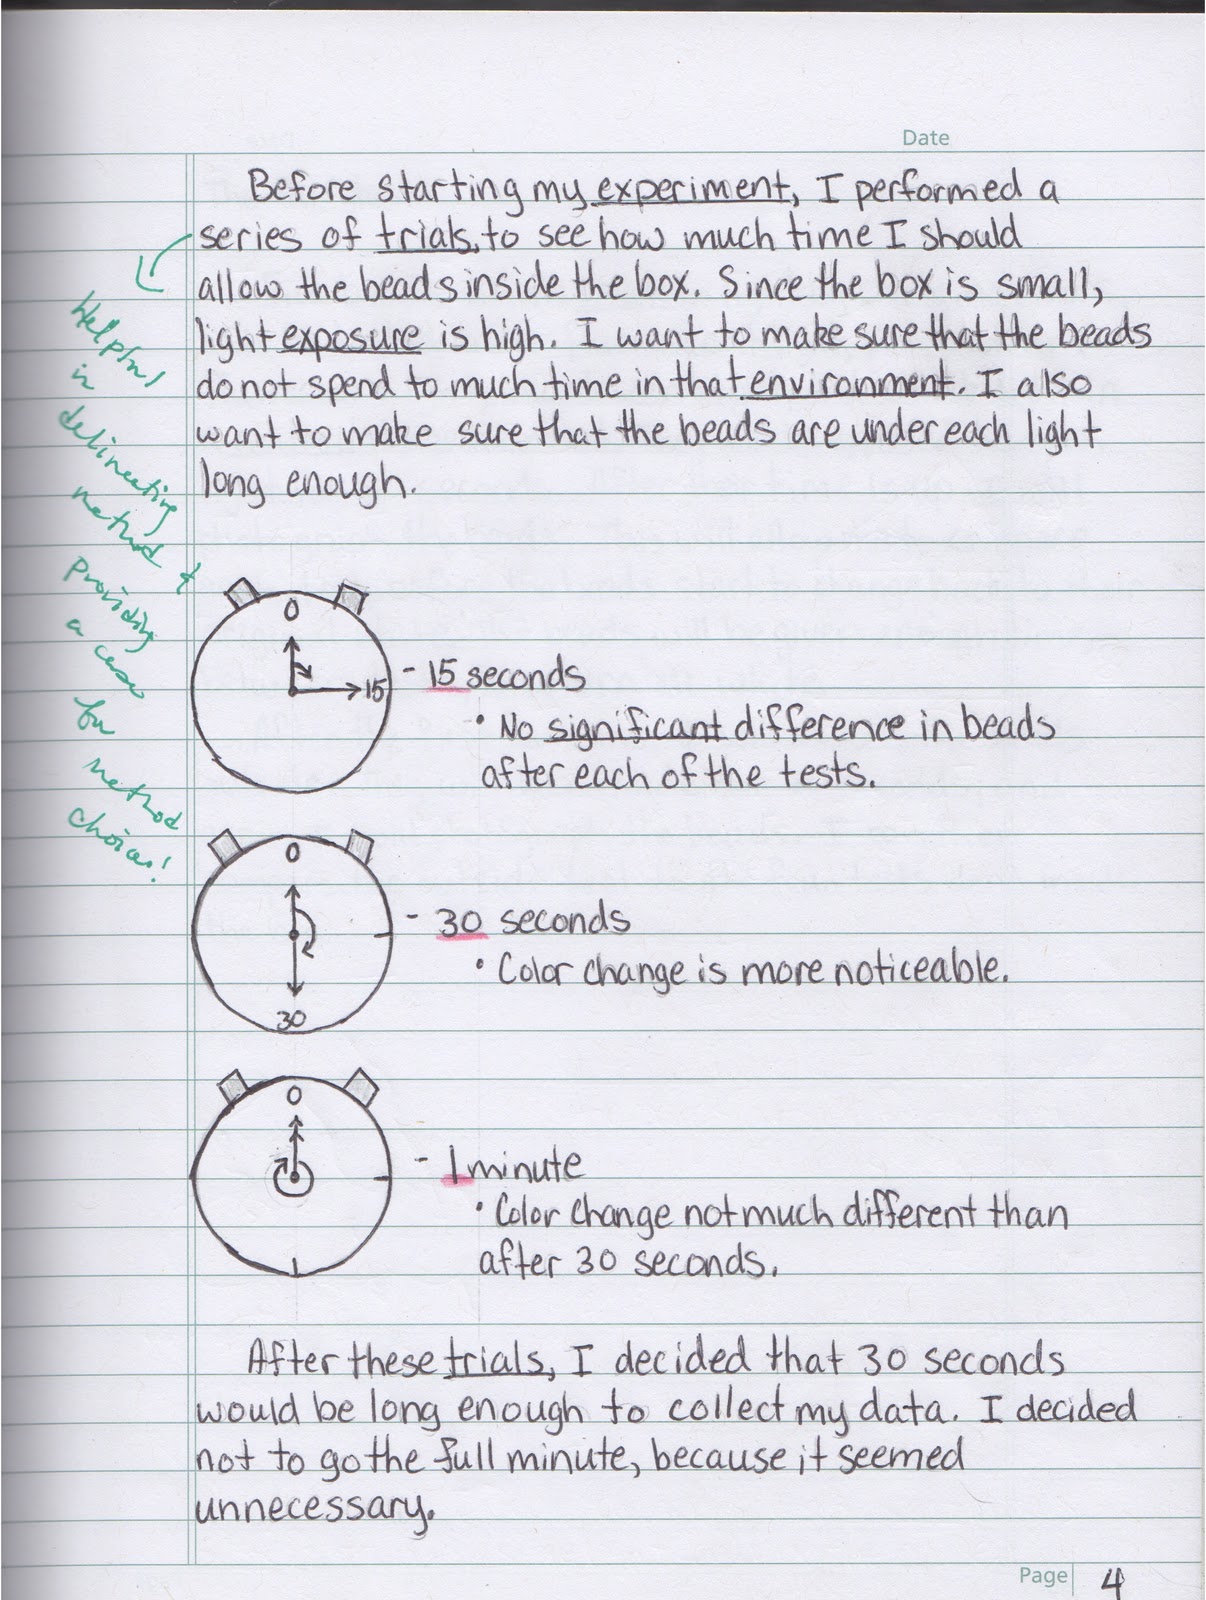 Date
Before starting my experiment, I performed a
series of trials, to see how much time I should
allow the beads inside the box. Since the box is small,
light exposure is high. I want to make sure that the beads
do not spend to much time in that environment. I also
want to make sure that the beads are under each light
long enough.
Helpful
in
delineating
method &
providing
a case
for
method
choices!
0
15
- 15 seconds
• No significant difference in beads
after each of the tests.
0
30
- 30 seconds
• Color change is more noticeable.
0
- 1 minute
• Color change not much different than
after 30 seconds.
After these trials, I decided that 30 seconds
would be long enough to collect my data. I decided
not to go the full minute, because it seemed
unnecessary.
Page 4